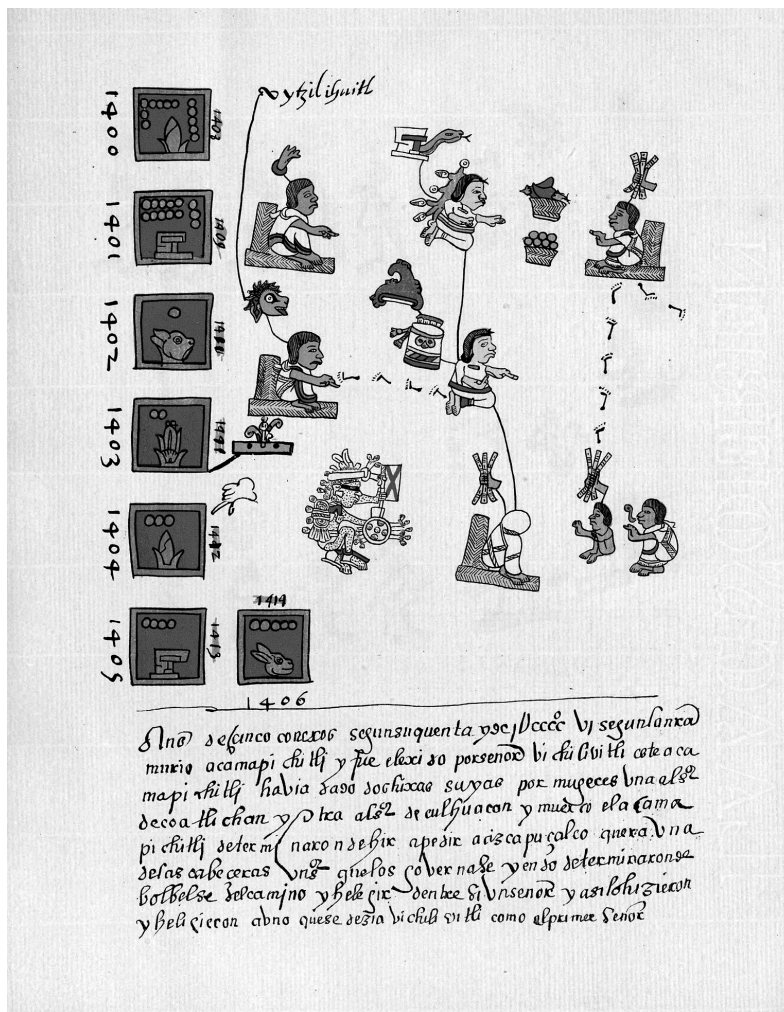 uytzilihuitl
1400
1403
1401
1402
1403
1404
1405
1413
1414
1406
Ano de cinco conexos segun su quenta y de jUcccc Vi segun la nra
murio acamapichitli y fue elexido por señor Vichiliuitli este aca
mapichitli havia dado dos hixas suyas por mugeres Vna al sor
de coatlichan y otra al sor de culhuacan y muerto el acama
pichitli determinaron de hir a pedir a azcapuçalco que era Vna
de las cabeceras Vn sor que los governase yendo determinaron de
bolbelse del camino y helegir dentre si Vn señor y asi lo hizieron
y heligieron a uno que se dezia Vichilivitli como el primer señor